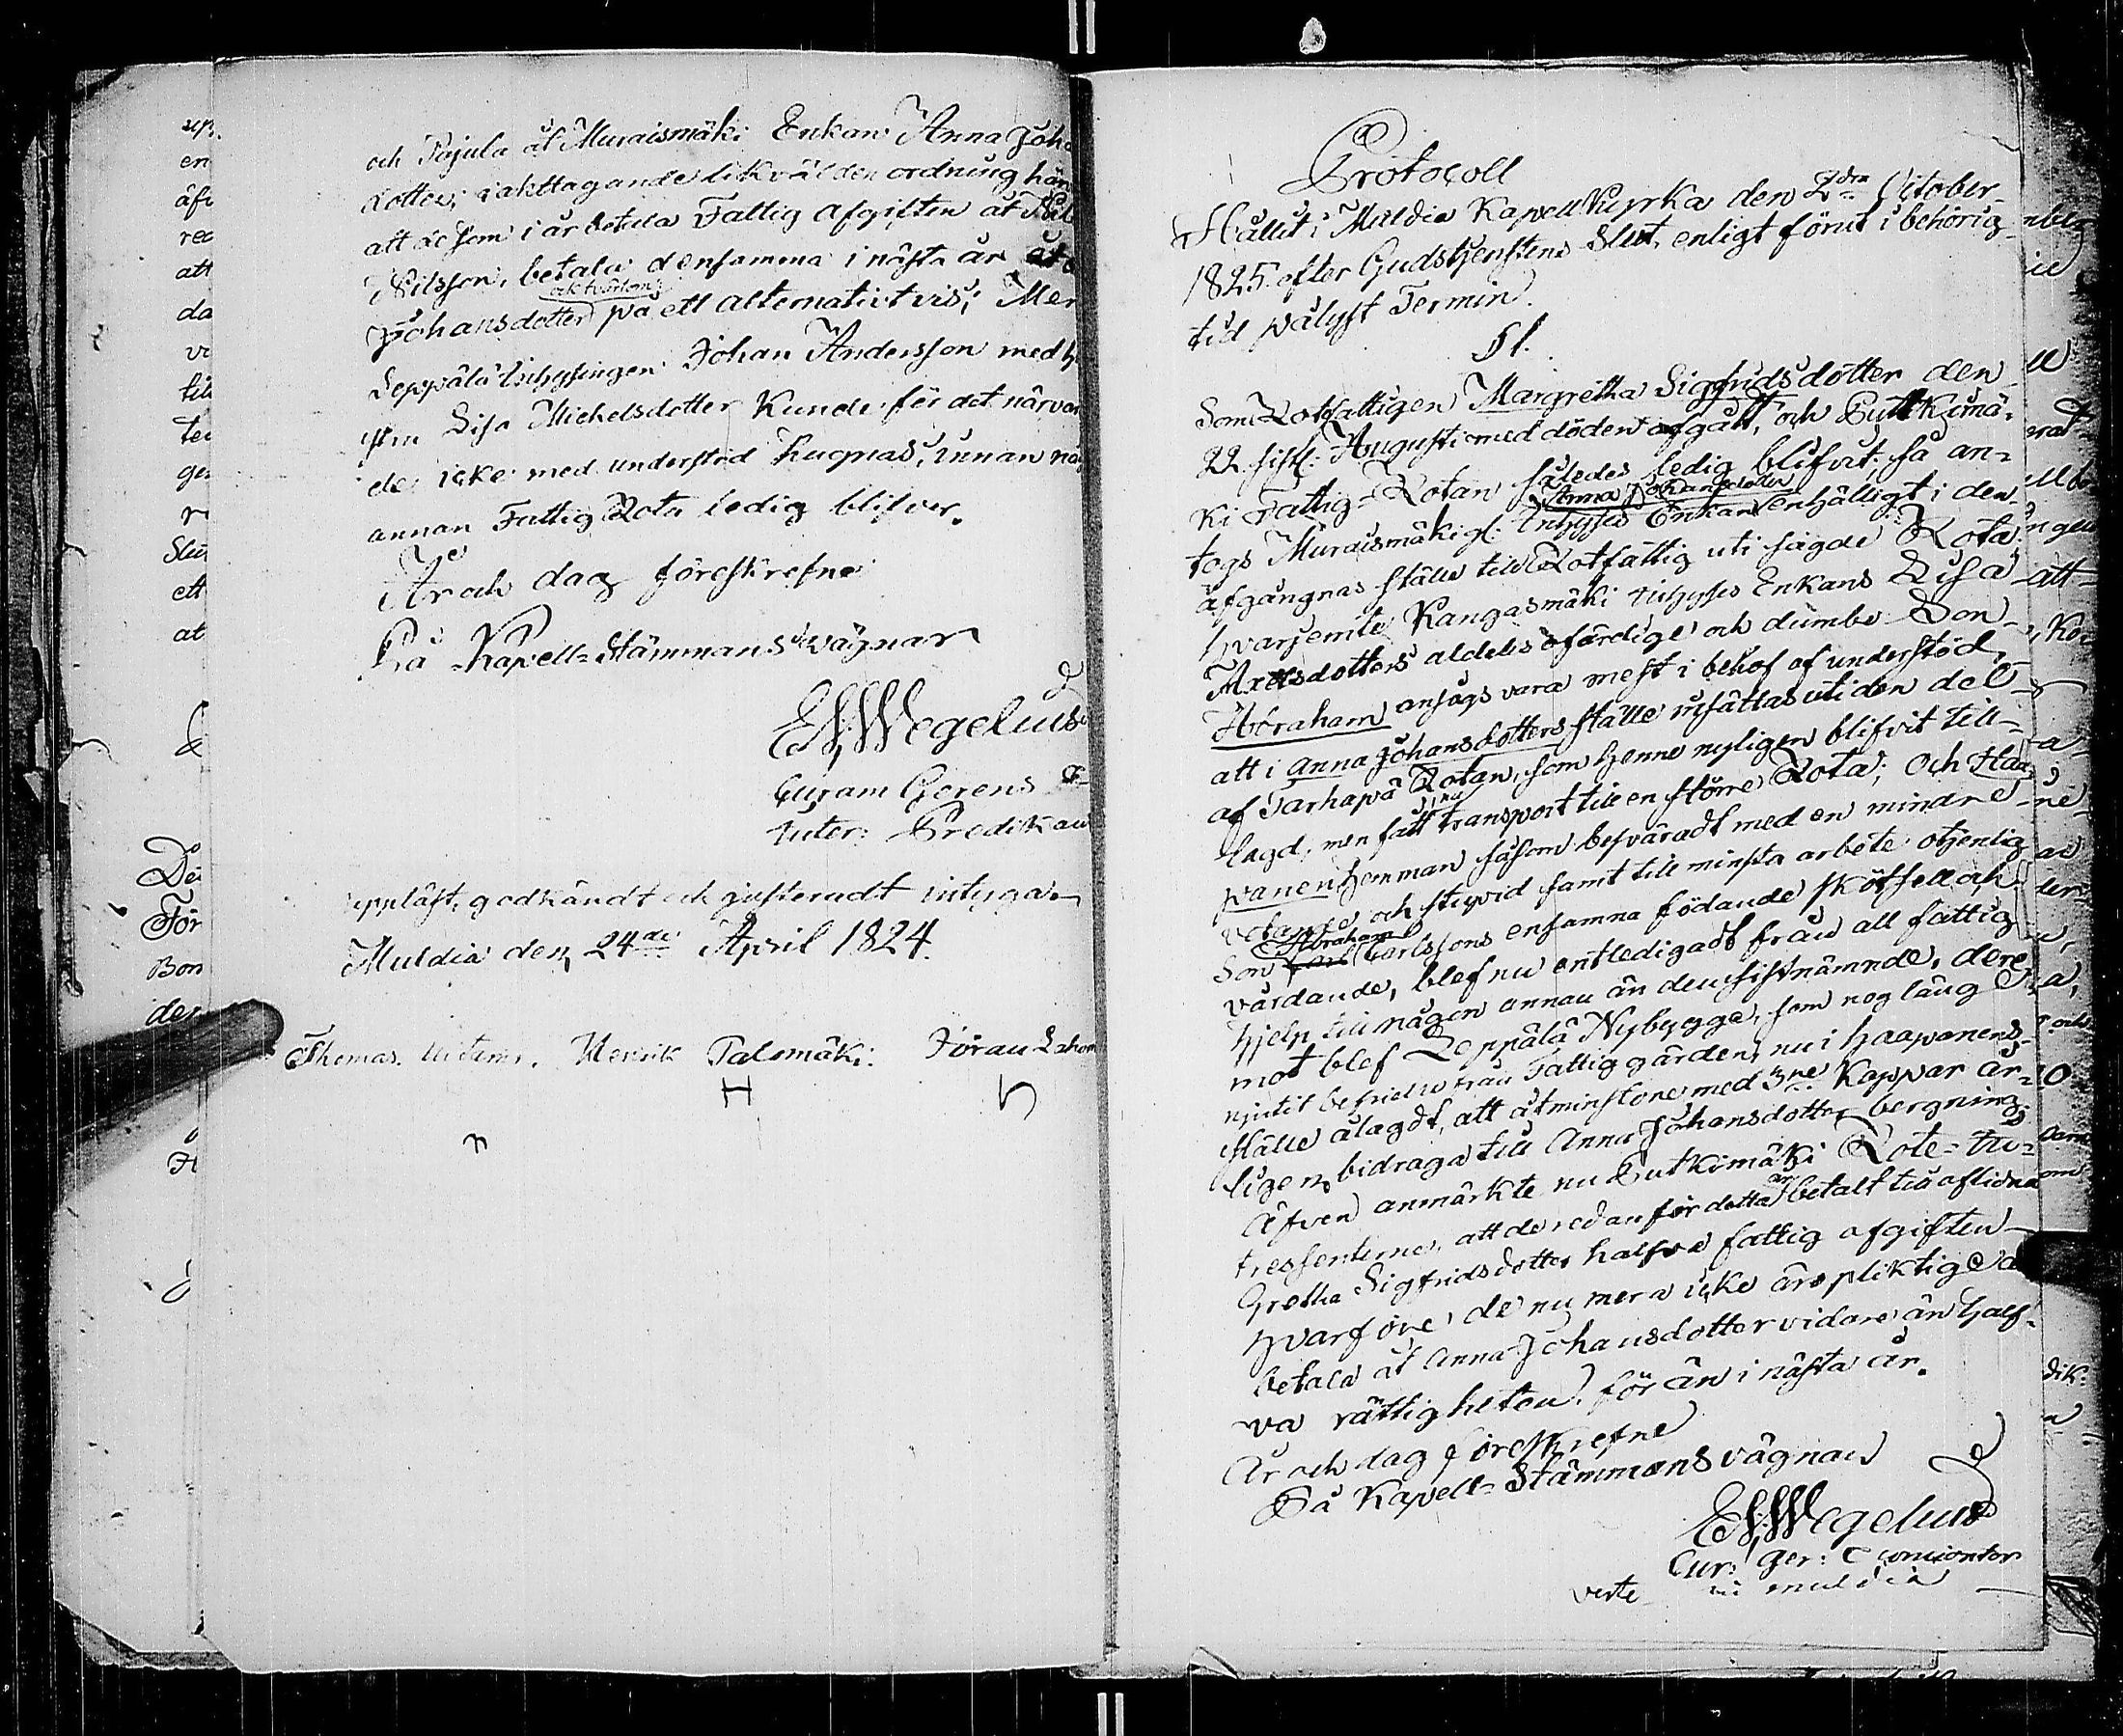 och Pajula åt Muraismäki Enkan Anna Joh
dotter; iakttagande likväl den ordning här
att de som i år betala Fattig Afgiften åt
Nilsson, betala densamma i nästa år åt
och tvärtom
Johansdotter på ett alternativt vis; Men
Seppälä Inhysingen Johan Andersson med
Lisa Michelsdotter Kunde för det närvar
de icke med understöd hugnas, innan nå
annan Fattig Rota ledig blifver.
År och dag föreskrefne
På Kapell-Stämmans vägnar
E W Wegelius
Curam Gerens
Predikan
uppläst, godkändt och justeradt intyga
Muldia den 24de April 1824.
Thomas Henrik Palomäki. Jöran
H
Protocoll
Hållit i Muldia Kapell Kyrka den 2dra October
1825 efter Gudstjenstens Slut, enligt förut i behörig
tid pålyst Termin.
§ 1.
Som Rotfattigen Margretha Sigfridsdotter den
22 sistl: Augusti med döden afgått, och Putkimä-
ki Fattig-Rotan således ledig blifvit, så an-
Anna Johansdotter
togs Muraismäki gl: Inhyses Enkan enhälligt i den
afgångnas ställe till Rotfattig uti sagde Rota
hvarjemte Kangasmäki Inhyses Enkans Lisa
Axelsdotters aldeles ofärdige och dumbe Son
Abraham ansågs vara mest i behof af understöd,
att i Anna Johansdotters ställe insättas uti den del
af Tarhapä Rotan, som henne nyligen blifvit till-
nu
lagd, men fått transport till en större Rota; och Haa
panen hemman såsom besväradt med en mindre
vetande och styvid samt till minsta arbete otjenlig
Abraham
Son Carl Carlssons ensamna födande skötsel och
vårdande, blef nu entledigadt från all fattig
hjelp till någon annan än den sistnämnde, dere
mot blef Seppälä Nybygge, som nog länge
njutit befrielse från Fattiggärden, nu i Haapanens
ställe ålagdt, att åtminstone med 3ne Kappar år-
ligen bidraga till Anna Johansdotter bergning.
Äfven anmärkte nu Putkimäki Rote-In-
år
tressenterne, att de redan för detta betalt till aflidna
Gretha Sigfridsdotter halfva fattig afgiften
hvarföre de nu mera icke äro pliktige
betala åt Anna Johansdotter vidare än half-
va rättigheten, för än i nästa år.
År och dag föreskrefne
På Kapell-Stämmans vägnar
E W Wegelius
Cur: Ger: Concionator
i Muldia
verte